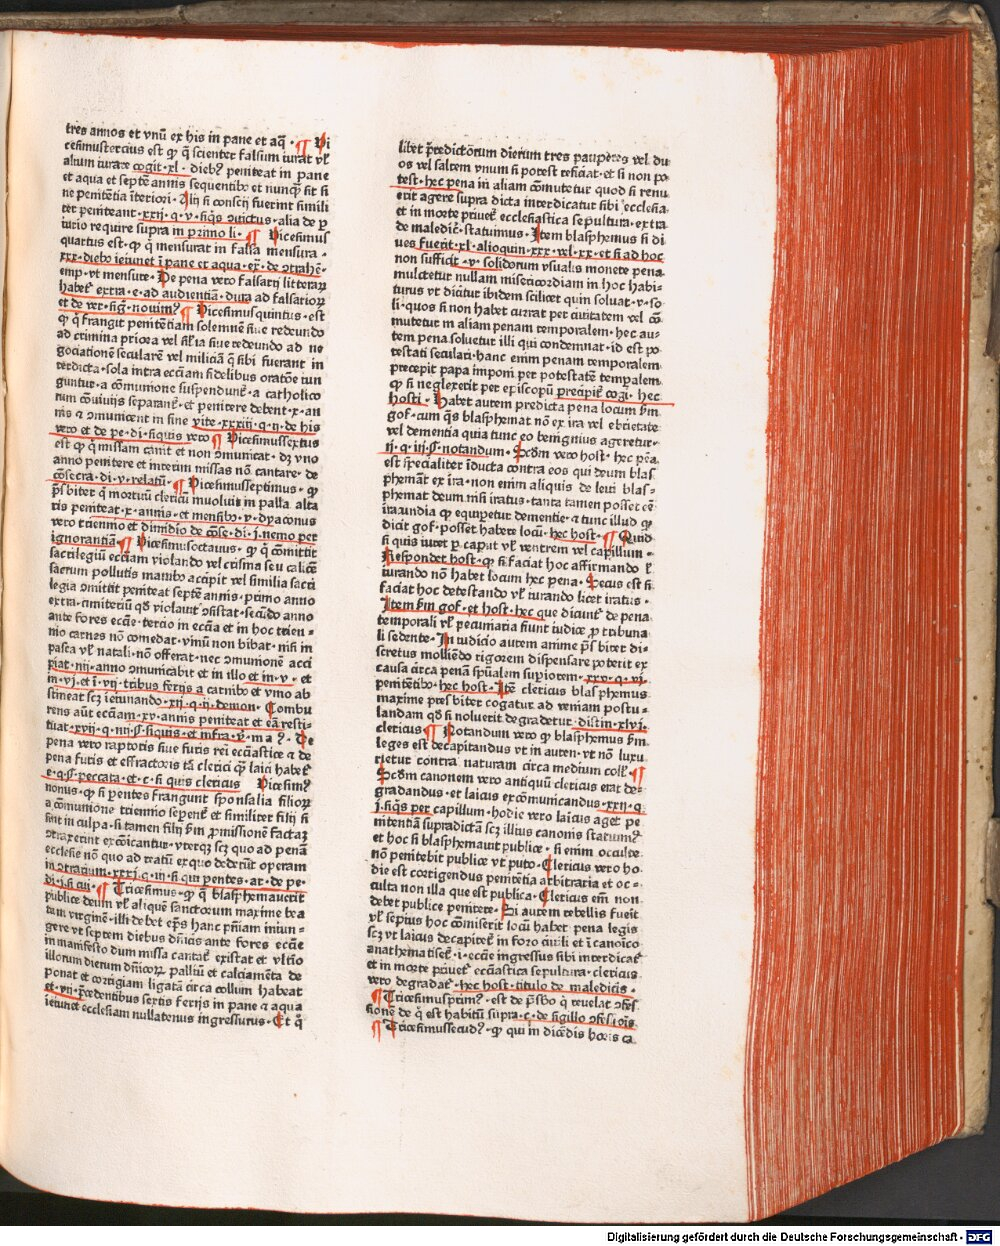 tres annos et vnū ex his in pane et aq̄ · ¶ Vi
cesimustercius est ꝙ q̄ scienter falsum iurat vl̛
alium iurare cogit · xl · diebꝰ peniteat in pane
et aqua et septē annis sequentibꝰ et nunqͥ sit si
ne penitētia īteriori · Alij si conscij fuerint simili
ter peniteant · xxij · q · v · siq̄s ↄuictus · alia de ꝑ
iurio require supra in primo li · ¶ Vicesimus
quartus est · ꝙ q̄ mensurat in falsa mensura ·
xxx · diebꝰ ieiunet ī pane et aqua · ex̄ · de ↄtrahē ·
emp · vt mensure · De pena vero falsarij litterarꝝ
habet̛ extra · e · ad audientiā · dura ad falsariorꝝ
et de ver · sig̛ · nouimꝰ ¶ Vicesimusquintus · est
ꝙ q̄ frangit penitētiam solemnē siue redeundo
ad crimina priora vel sil̛ia siue redeundo ad ne
gociationē secularē vel miliciā q̄ sibi fuerant in
terdicta · sola intra eccīam fidelibus oratōe iun
guntur · a cōmunione suspendunt̛ · a catholico
rum cōuiuijs separant̛ · et penitere debent · x · an
nis et ↄmunicent in fine vite · xxxiij · q · ij · de his
vero et de pe · di · si quis vero ¶ Vicesimussextus
est ꝙ q̄ missam canit et non ↄmunicat · dꝫ vno
anno penitere et interim missas nō cantare · de
cōsecra · di · v · relatū · ¶ Vicesimusseptimus · ꝙ
p̄sbiter q̄ mortuū clericū inuoluit in palla alta
ris peniteat · x · annis · et mensibꝰ · v · dyaconus
vero triennio et dimidio de cōse · di · j · nemo per
ignorantiā · ¶ Vicesimusoctauus · ꝙ q̄ cōmittit
sacrilegiū eccīam violando vel crisma seu calicē
sacrum pollutis manibꝰ accipit vel similia sacri
legia ↄmittit peniteat septē annis · primo anno
extra · cimiteriū qd̄ violauit ↄsistat · secūdo anno
ante fores eccīe · tercio in eccīa et in hoc trien =
nio carnes nō comedat · vinū non bibat · nisi in
pasca vl̛ natali · nō offerat · nec ↄmunionē acci
piat · iiij · anno ↄmunicabit et in illo et in · v · et
in · vj · et ī · vij · tribus ferijs a carnibꝰ et vino ab
stineat scꝫ ieiunando · xij · q · ij · demon · Combu
rens aūt eccīam · xv · annis peniteat et eā resti=
tuat · xvij · q · iiij · §· siquis · et infra · v̄ · m a ? · De
pena vero raptoris siue furis rei eccīastice ⁊ de
pena furis et effractoris tā clerici q̄ laici habet̛
e · q · § · peccata · et · c · si quis clericus Vicesimꝰ
nonus · ꝙ si ꝑentes frangunt sponsalia filiorꝝ
a cōmunione triennio seperent̛ et similiter filij si
sint in culpa · si tamen filij ẜm ꝓmissionē factaꝫ
ↄtraxerint excōicantur · vterqꝫ scꝫ quo ad penā
ecclesie nō quo ad reatū ex quo dederūt operam
in ↄtrarium · xxxj · q · iij · si qui ꝑentes · ar · de pe ·
di · j · si cui · ¶ Tricesimus · ꝙ q̄ blasphemauerit
publice deum vl̛ aliquē sanctorum maxime bea
tam virginē · illi debet ep̄s hanc pn̄iam iniun=
gere vt septem diebus dn̄icis ante fores eccīe
in manifesto dum missa cantat̛ existat et vltīo
illorum dierum dn̄icorꝝ palliū et calciamēta de
ponat et corrigiam ligatā circa collum habeat
et · vij · p̄cedentibus sextis ferijs in pane ⁊ aqua
ieiunet ecclesiam nullatenus ingressurus · Et q̄
libet p̄redictōrum dierum tres pauperes vel du
os vel saltem vnum si potest reficiat · et si non po
test · hec pena in aliam cōmutetur quod si renu
erit agere supra dicta interdicatur sibi ecclesia ·
et in morte priuet̛ ecclesiastica sepultura · extra
de maledic̄ · statuimus · Item blasphemus si di
ues fuerit · xl · alioquin · xxx · vel · xx · et si ad hoc
non sufficit · v · solidorum vsualis monete pena
mulctetur nullam misericordiam in hoc habi=
turus vt dicitur ibidem scilicet quin soluat · v · so
li · quos si non habet currat per ciuitatem vel cō
mutetur in aliam penam temporalem · hec au=
tem pena soluetur illi qui condemnat · id est po
testati seculari · hanc enim penam temporalem
precepit papa imponi per potestatē tempalem
ꝙ si neglexerit per episcopū precipit̛ cogi · hec
hosti · Habet autem predicta pena locum ẜm
gof · cum q̄s blasphemat nō ex ira vel ebrietate
vel dementia quia tunc eo benignius ageretur ·
ij · q · iij · § · notandum · Scd̄m vero host · hec pēa
est specialiter īducta contra eos qui deum blas
phemāt ex ira · non enim aliquis de leui blas=
phemat deum nisi iratus · tanta tamen posset eē
iracundia ꝙ equipetur dementie · ⁊ tunc illud ꝙ
dicit gof · posset habere locū · hec host · ¶ Quid
si quis iuret ꝑ caput vl̛ ventrem vel capillum ·
Respondet host · ꝙ si faciat hoc affirmando l̛
iurando nō habet locum hec pena · Secus est si
faciat hoc detestando vl̛ iurando licet iratus ·
Item ẜm gof · et host · hec que dicunt̛ de pena
temporali vl̛ pecuniaria fiunt iudice ꝓ tribuna
li sedente · In iudicio autem anime p̄sbiter di=
scretus molliēdo rigorem dispensare poterit ex
causa circa penā spūalem supiorem · xxv · q · vj ·
penitētibꝰ · hec host · Itē clericus blasphemus
maxime presbiter cogatur ad veniam postu=
landam qd̄ si noluerit degradetur · distin · xlvj ·
clericus ¶ Notandum vero ꝙ blasphemus ẜm
leges est decapitandus vt in auten · vt nō luxu
rietur contra naturam circa medium coll̛ · ¶
Scd̄m canonem vero antiquū clericus erat de=
gradandus · et laicus excōmunicandus · xxij · q ·
j · siq̄s per capillum · hodie vero laicus aget pe
nitentiā supradictā scꝫ illius canonis statuimꝰ
et hoc si blasphemauit publice · si enim occulte
nō penitebit publice vt puto · Clericus vero ho
die est corrigendus penitētia arbitraria et oc=
culta non illa que est publica · Clericus em̄ non
debet publice penitere · Si autem rebellis fueīt
vl̛ sepius hoc cōmiserit locū habet pena legis
scꝫ vt laicus decapitet̛ in foro ciuili et ī canoīco
anathematiset̛ · i · eccīe ingressus sibi interdicat̛
et in morte priuet̛ eccīastica sepultura · clericus
vero degradat̛ · hec host · titulo de maledicis ·
¶ Tricesimusprimꝰ · est de p̄sbo q̄ reuelat ↄfes
sionē de q̄ est habitū supra · c · de sigillo ↄfessiōis
¶ Tricesimussecūdꝰ · ꝙ qui in dicēdis horis ca